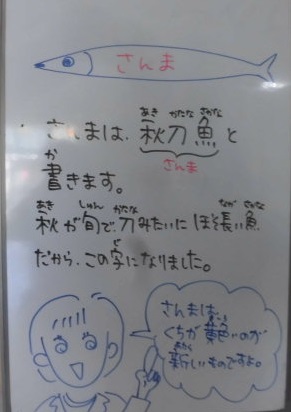 さんま
あき かたな さかな
さんまは、秋刀魚と
さんま
か
書きます。
あき しゅん かたな なが さかな
秋が旬で刀みたいにほそ長い魚
じ
だから、この字になりました。
さんまは、
くちが いのが
新しいものですよ。